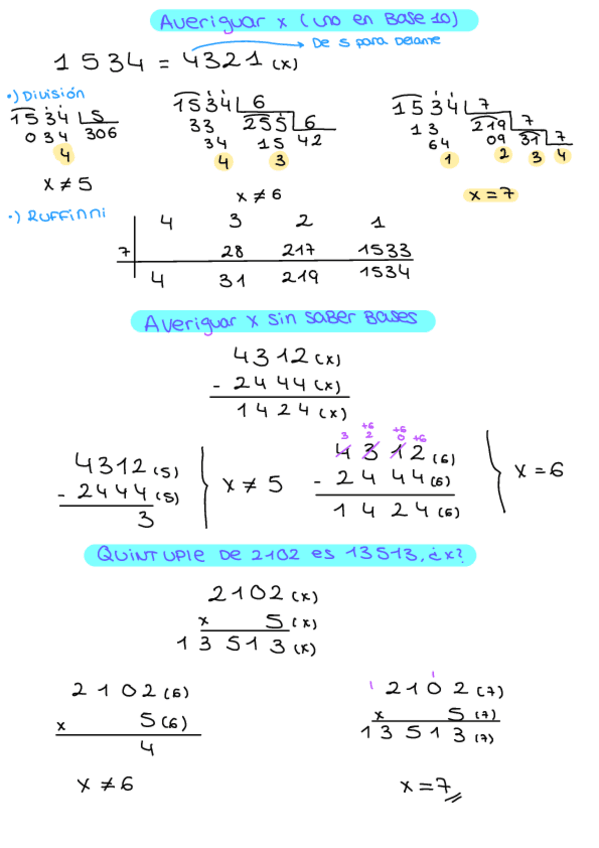 Averiguar x (uno en Base 10)
De 5 para Delante
1534 = 4321 (x)
•) División
1534 5
034 306
4
x ≠ 5
1534 6
33 255 6
34 15 42
4 3
x ≠ 6
1534 7
13 219 7
64 09 31 7
1 2 3 4
x = 7
•) Ruffinni
4 3 2 1
7 28 217 1533
4 31 219 1534
Averiguar x sin saber Bases
4312 (x)
- 2444 (x)
1424 (x)
4312 (5)
- 2444 (5)
3
x ≠ 5
+6 +6
3 2 0 +6
4312 (6)
- 2444 (6)
1424 (6)
x = 6
Quintuple de 2102 es 13513, ¿x?
2102 (x)
x 5 (x)
13513 (x)
2102 (6)
x 5 (6)
4
x ≠ 6
1 1
2102 (7)
x 5 (7)
13513 (7)
x = 7